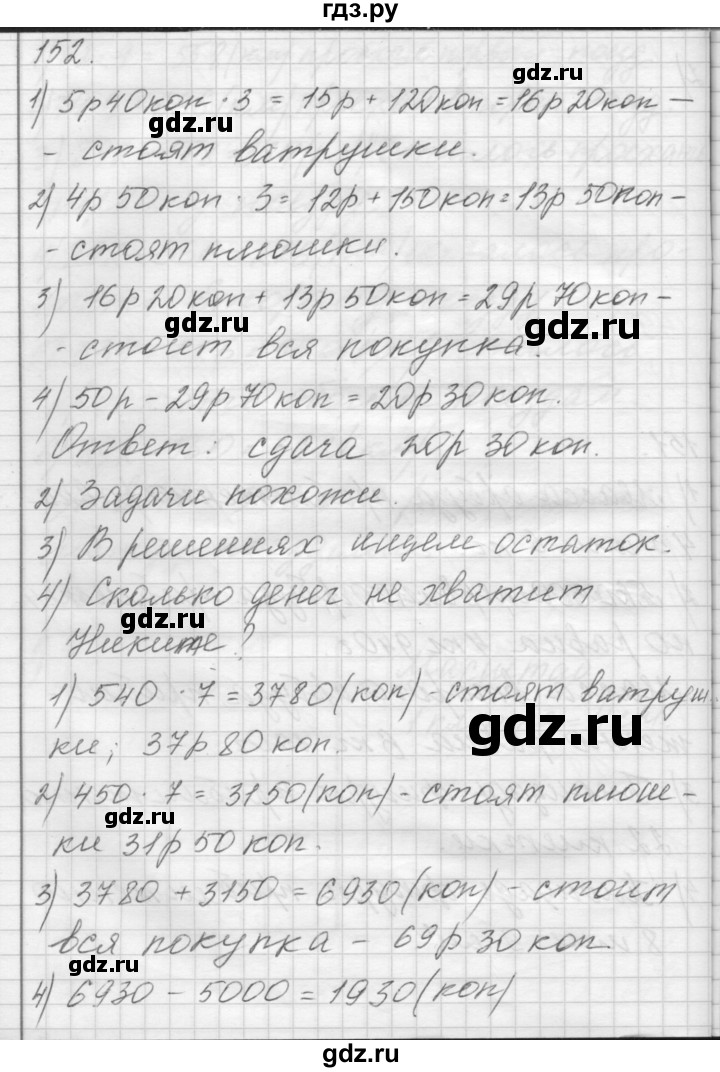 гдз.ру
152.
1) 5р40коп · 3 = 15р + 120коп = 16р20коп –
gdz.ru
- стоят ватрушки.
gdz.ru
2) 4р 50коп · 3 = 12р + 150коп = 13р 50коп -
- стоят плюшки.
3) 16р20коп + 13р50коп = 29р 70коп -
gdz.ru
gdz.ru
- стоит вся покупка.
4) 50р - 29р 70коп = 20р 30коп.
gdz.ru
Ответ: сдача 20р 30коп.
2) Задачи похожи.
3) В решениях ищем остаток.
4) Сколько денег не хватит
gdz.ru
Никите?
1) 540 · 7 = 3780 (коп) - стоят ватруш
gdz.ru
ки; 37р 80коп.
2) 450 · 7 = 3150 (коп) - стоят плюш-
gdz.ru
ки 31р 50коп.
3) 3780 + 3150 = 6930 (коп) - стоит
вся покупка - 69р 30коп.
gdz.ru
4) 6930 - 5000 = 1930 (коп)
gdz.ru